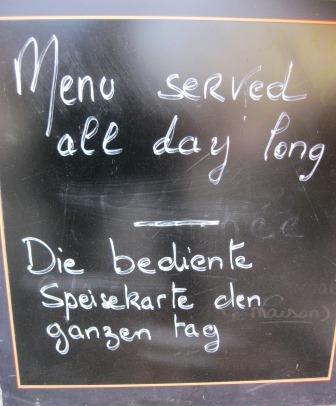 Menu served
all day long
Die bediente
Speisekarte den
ganzen tag
(Maison)